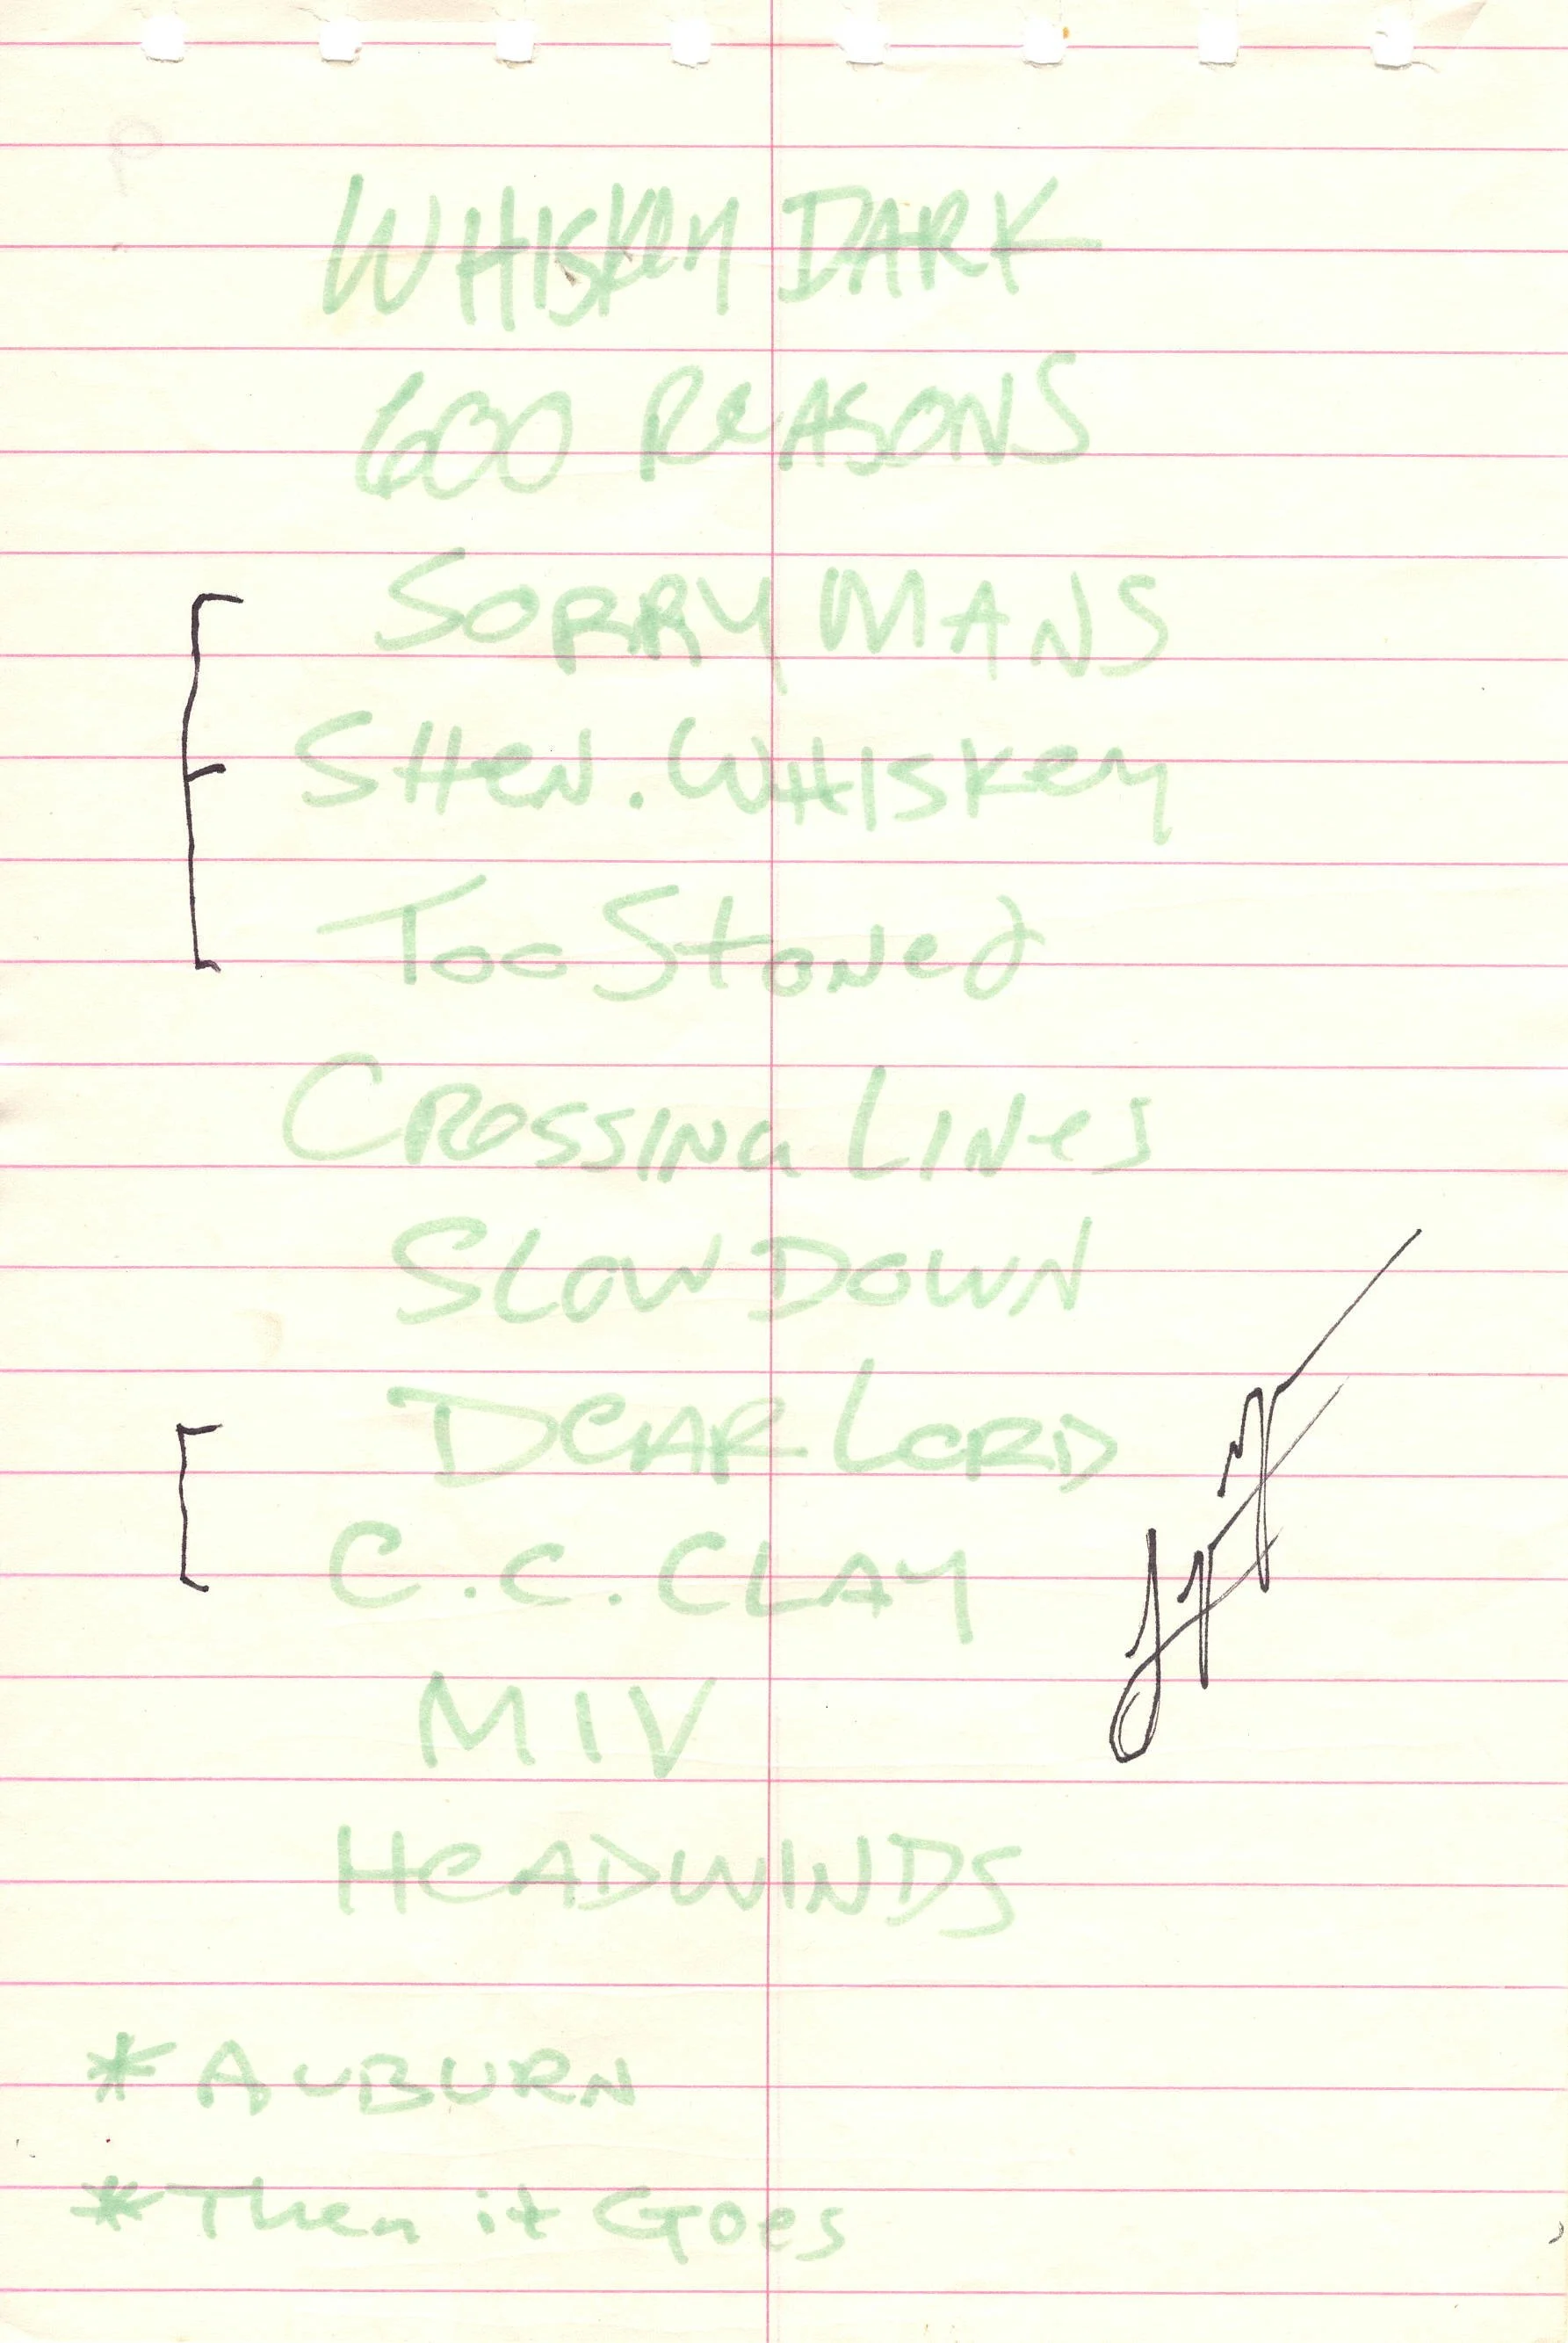 WHISKEY DARK
600 REASONS
SORRY MANS
SHEN. WHISKEY
TOO STONED
CROSSING LINES
SLOW DOWN
DEAR LORD
C.C. CLAY
MIV
HEADWINDS
* AUBURN
* Then it Goes